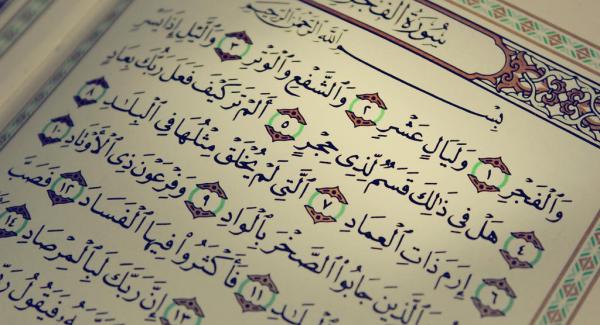 سُورَةُ الْفَجْرِ
بِسْمِ ٱللَّهِ ٱلرَّحْمَٰنِ ٱلرَّحِيمِ
وَٱلْفَجْرِ ١ وَلَيَالٍ عَشْرٍ ٢ وَٱلشَّفْعِ وَٱلْوَتْرِ ٣ وَٱلَّيْلِ إِذَا يَسْرِ
٤ هَلْ فِى ذَٰلِكَ قَسَمٌ لِّذِى حِجْرٍ ٥ أَلَمْ تَرَ كَيْفَ فَعَلَ رَبُّكَ بِعَادٍ
٦ إِرَمَ ذَاتِ ٱلْعِمَادِ ٧ ٱلَّتِى لَمْ يُخْلَقْ مِثْلُهَا فِى ٱلْبِلَٰدِ ٨
ٱلَّذِينَ جَابُوا۟ ٱلصَّخْرَ بِٱلْوَادِ ٩ وَفِرْعَوْنَ ذِى ٱلْأَوْتَادِ ١٠
ٱلْبِلَٰدِ ١١ فَأَكْثَرُوا۟ فِيهَا ٱلْفَسَادَ ١٢ فَصَبَّ
١٣ إِنَّ رَبَّكَ لَبِٱلْمِرْصَادِ ١٤
فَيَقُولُ